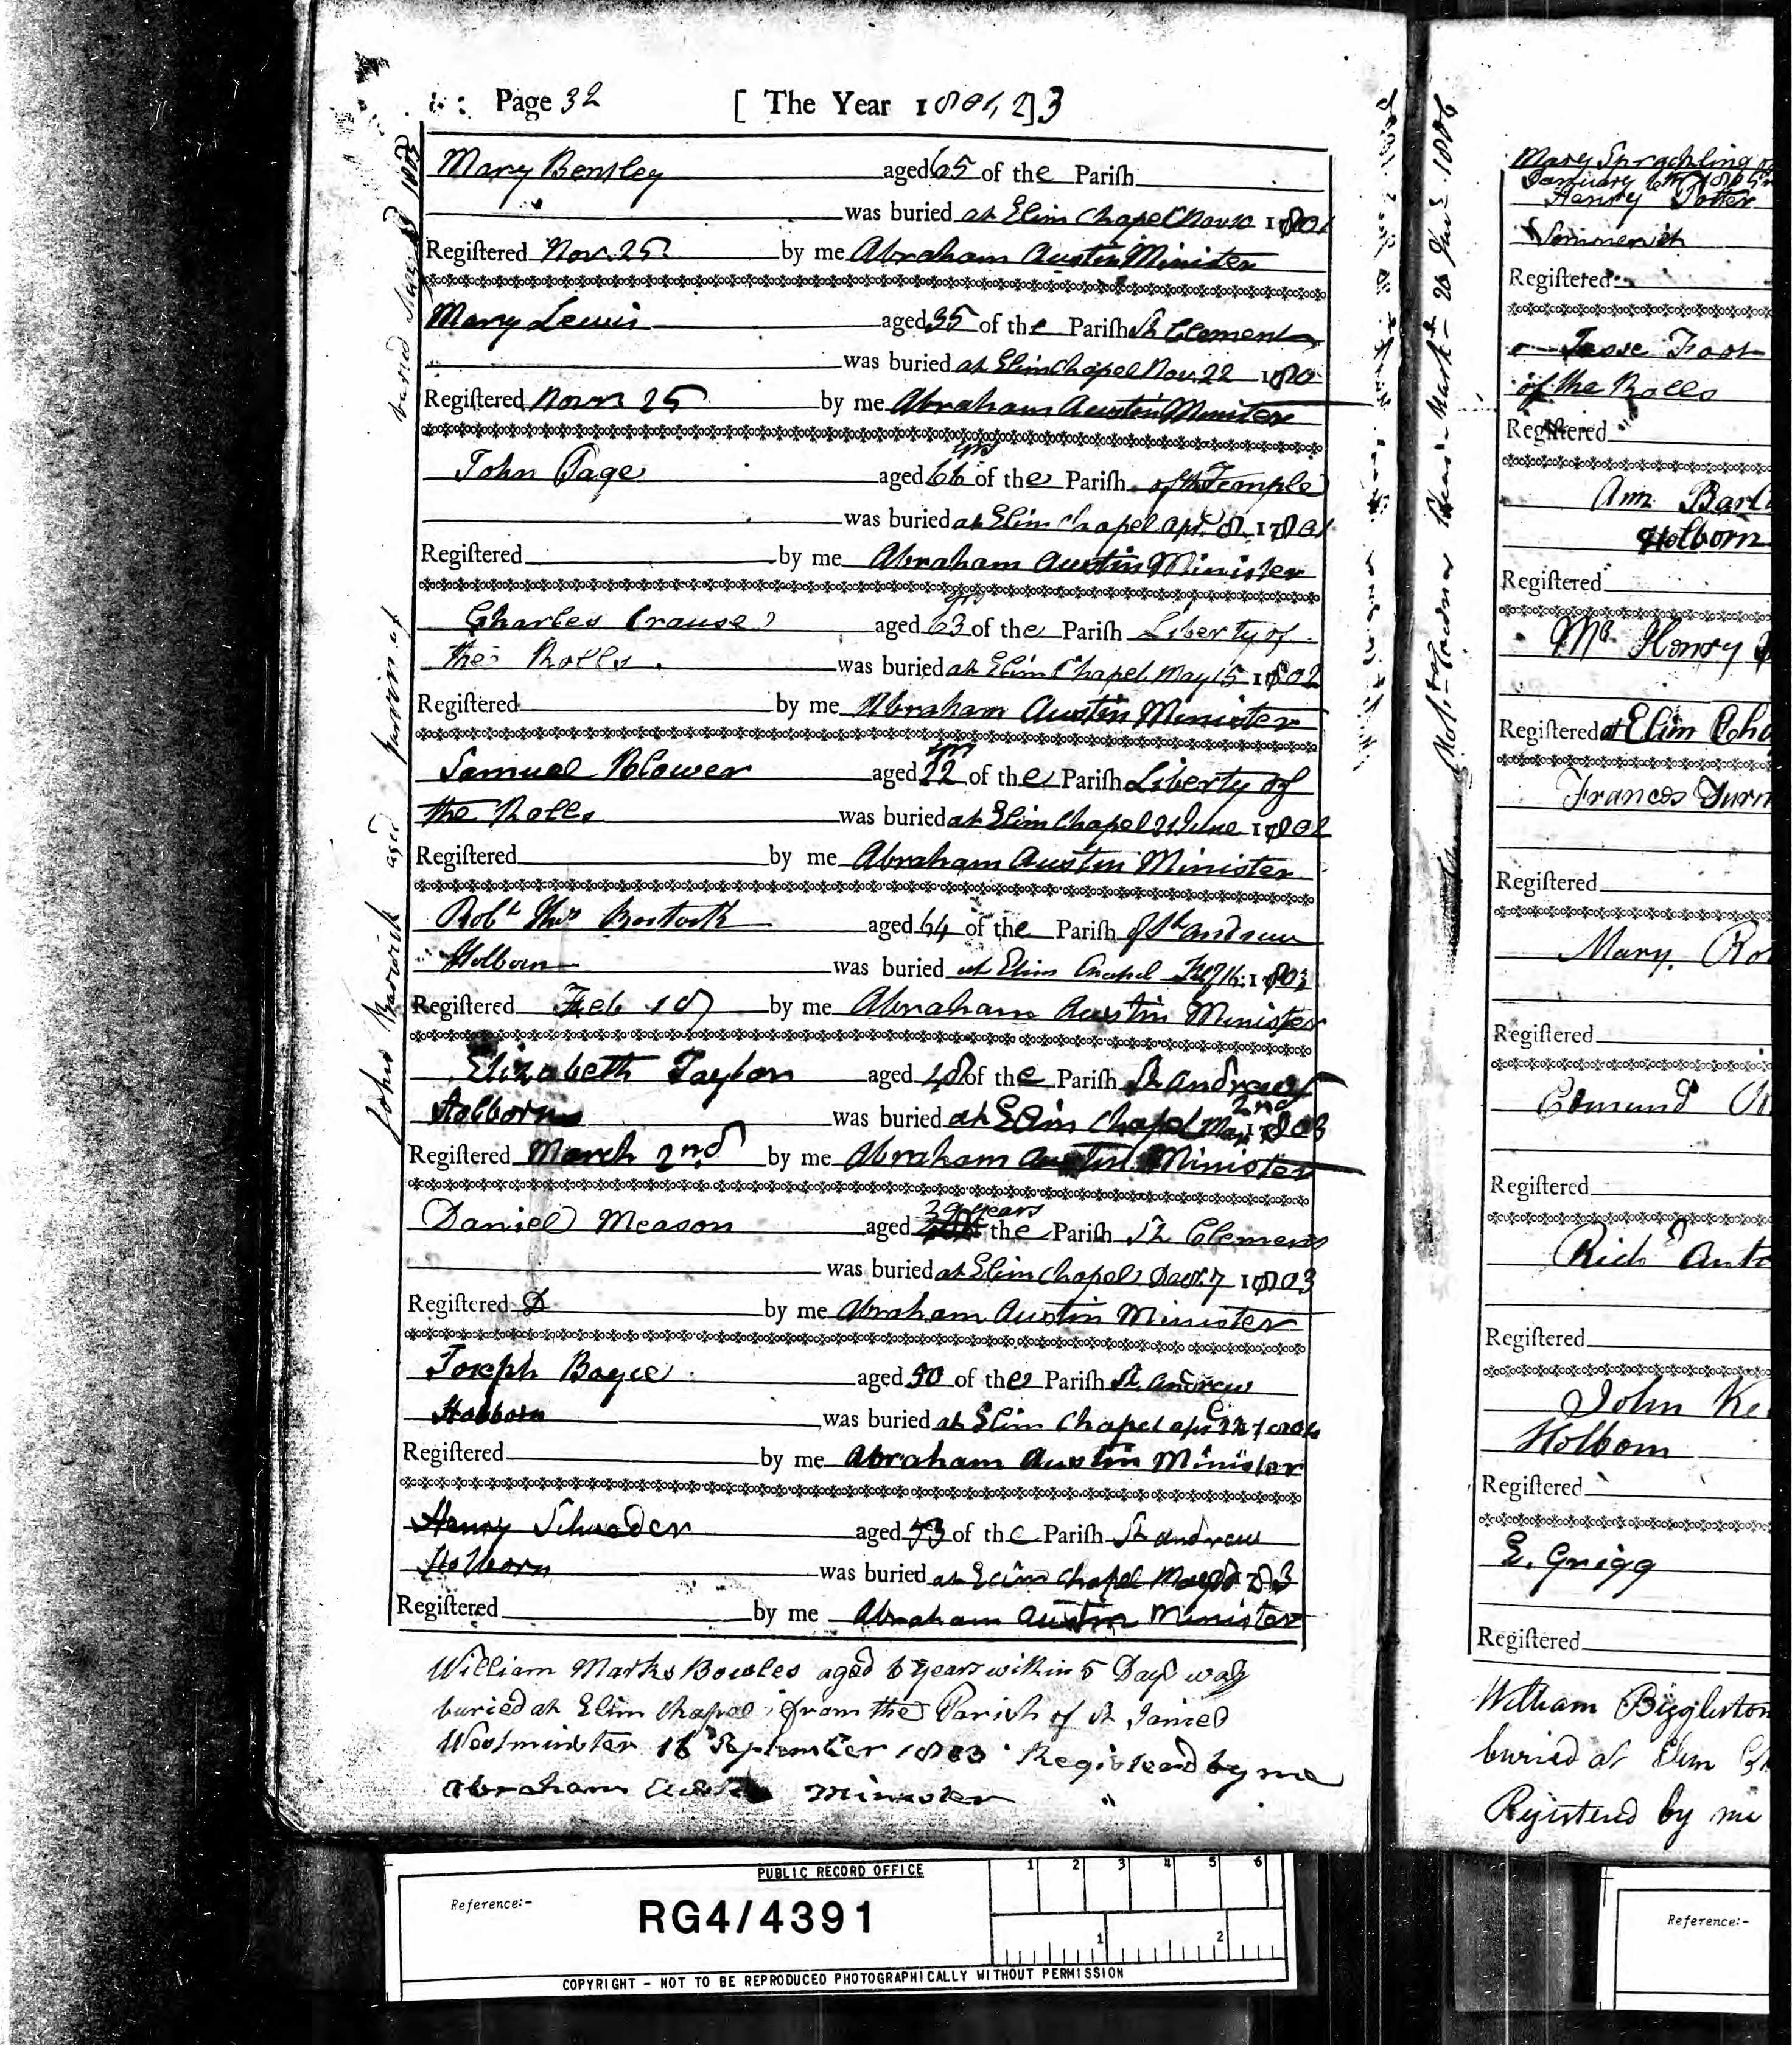 Page 32 [ The Year 1801, 2] 3
Mary Bensley aged 65 of the Pariſh
was buried at Elim Chapel Nov 10 1801
Regiſtered Nov. 25 by me Abraham Austin Minister
Mary Lewis aged 35 of the Pariſh St Clement
was buried at Elim Chapel Nov. 22 180
Regiſtered Novr 25 by me Abraham Austin Minister
John Page aged 66 yrs of the Pariſh of the Temple
was buried at Elim Chapel Apr. 8. 1801
Regiſtered by me Abraham Austin Minister
Charles Crause aged 63 yrs of the Pariſh Liberty of
the Rolls was buried at Elim Chapel May 15 1802
Regiſtered by me Abraham Austin Minister
Samuel Blower aged 22 yrs of the Pariſh Liberty of
the Rolls was buried at Elim Chapel 21 June 1802
Regiſtered by me Abraham Austin Minister
Robt Thos Bostock aged 64 of the Pariſh of St Andrew
Holborn was buried at Elim Chapel 1803
Regiſtered Feb 18 by me Abraham Austin Minister
Elizabeth Taylor aged 48 of the Pariſh St Andrews
Holborn was buried at Elim Chapel Mar 2nd 1803
Regiſtered March 2nd by me Abraham Austin Minister
Daniel Meason aged 39 years the Pariſh St Clemens
was buried at Elim Chapel 7 1803
Regiſtered D by me Abraham Austin Minister
Joseph Boyce aged 50 of the Pariſh St Andrew
Holborn was buried at Elim Chapel apr
Regiſtered by me Abraham Austin Minister
Henry Schroder aged 53 of the Pariſh St Andrew
Holborn was buried at Elim Chapel May
Regiſtered by me Abraham Austin Minister
William Marks Bowles aged 6 years within 5 Days was
buried at Elim Chapel from the Parish of St James
Westminster 16 September 1803 Registerd by me
Abraham Minister
John Barwick aged buried 1803
Mary Sprachling
January 6th
Henry Potter
Regiſtered
Jesse Foot
of the Rolls
Regiſtered
Ann Barl
Holborn
Regiſtered
Mr Henry
Regiſtered at Elim Cha
Frances Turn
Regiſtered
Mary Ro
Regiſtered
Edmund
Regiſtered
Richd Anto
Regiſtered
John Ke
Holborn
Regiſtered
E. Grigg
Regiſtered
William Bigglston
buried at Elim Ch
Registered by me
PUBLIC RECORD OFFICE
Reference:-
RG4/4391
1 2 3 4 5 6
1 2
COPYRIGHT - NOT TO BE REPRODUCED PHOTOGRAPHICALLY WITHOUT PERMISSION
Reference:-